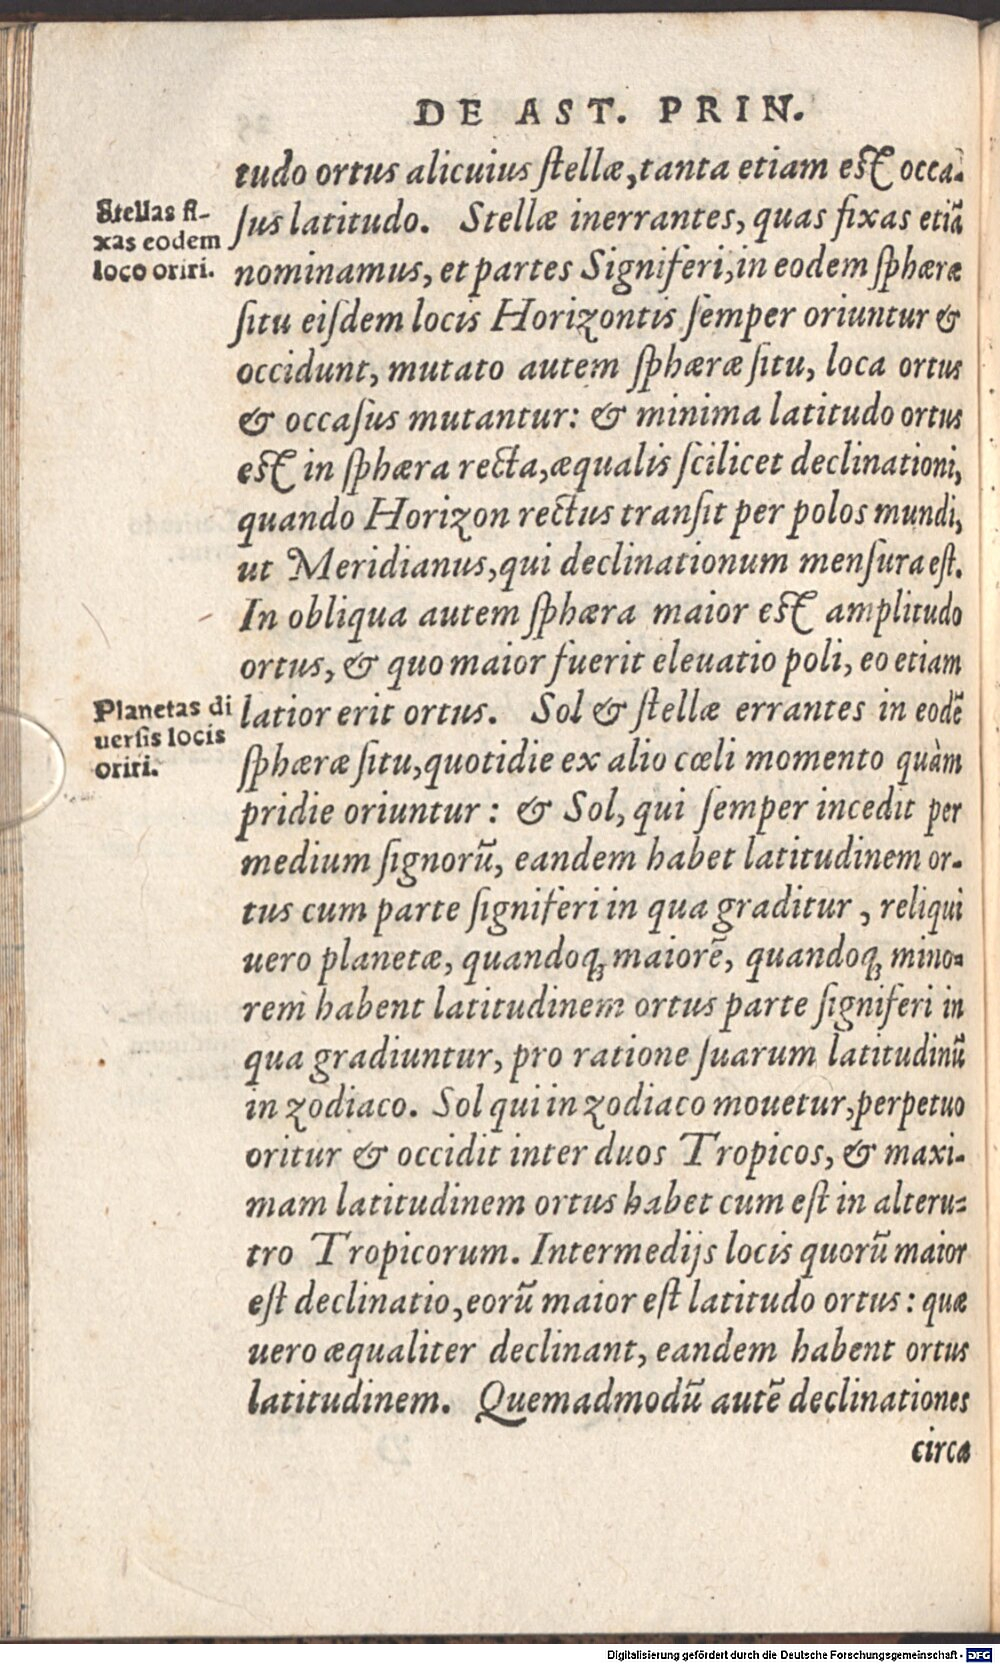 DE AST. PRIN.
tudo ortus alicuius ſtellæ, tanta etiam eſt occa-
Stellas fi-
xas eodem
loco oriri.
ſus latitudo. Stellæ inerrantes, quas fixas etiã
nominamus, et partes Signiferi, in eodem ſphæræ
ſitu eiſdem locis Horizontis ſemper oriuntur &
occidunt, mutato autem ſphæræ ſitu, loca ortus
& occaſus mutantur: & minima latitudo ortus
eſt in ſphæra recta, æqualis ſcilicet declinationi,
quando Horizon rectus tranſit per polos mundi,
ut Meridianus, qui declinationum menſura eſt.
In obliqua autem ſphæra maior eſt amplitudo
ortus, & quo maior fuerit eleuatio poli, eo etiam
Planetas di
uerſis locis
oriri.
latior erit ortus. Sol & ſtellæ errantes in eodẽ
ſphæræ ſitu, quotidie ex alio cœli momento quàm
pridie oriuntur: & Sol, qui ſemper incedit per
medium ſignorũ, eandem habet latitudinem or-
tus cum parte ſigniferi in qua graditur, reliqui
uero planetæ, quandoq; maiorẽ, quandoq; mino-
rem habent latitudinem ortus parte ſigniferi in
qua gradiuntur, pro ratione ſuarum latitudinũ
in zodiaco. Sol qui in zodiaco mouetur, perpetuo
oritur & occidit inter duos Tropicos, & maxi-
mam latitudinem ortus habet cum eſt in alteru-
tro Tropicorum. Intermedijs locis quorũ maior
eſt declinatio, eorũ maior eſt latitudo ortus: quæ
uero æqualiter declinant, eandem habent ortus
latitudinem. Quemadmodũ autẽ declinationes
circa
Digitalisierung gefördert durch die Deutsche Forschungsgemeinschaft - DFG